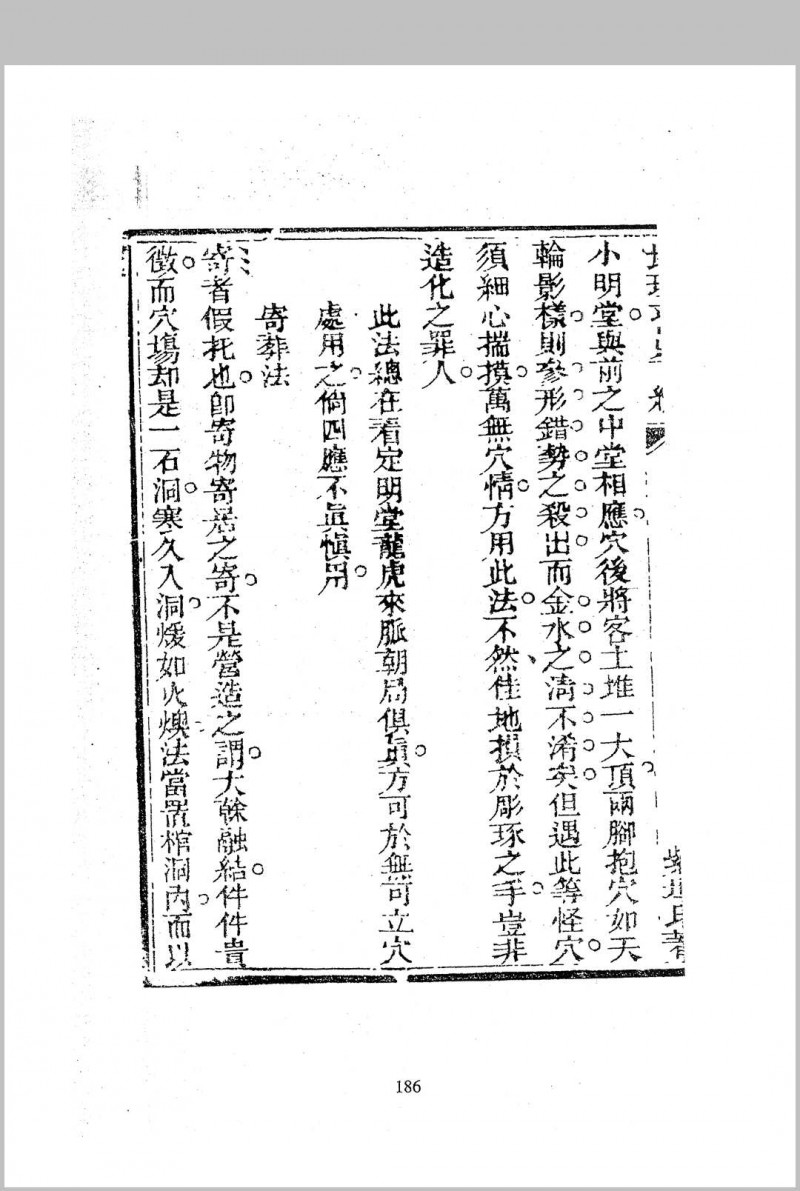 小明堂與前之中堂相應穴後將客土堆一大頂兩腳抱穴如天
輪影樣則參形錯勢之殺出而金水之淸不淆矣但遇此等怪穴
須細心揣摸萬無穴情方用此法不然佳地損於彫琢之手豈非
造化之罪人
此法總在看定明堂龍虎來脈朝局俱眞方可於無可立穴
處用之倘四應不眞愼用
寄葬法
寄者假托也卽寄物寄居之寄不是營造之謂大餘融結件件貴
徴而穴塲却是一石洞寒久入洞煖如火燠法當置棺洞內而以
186